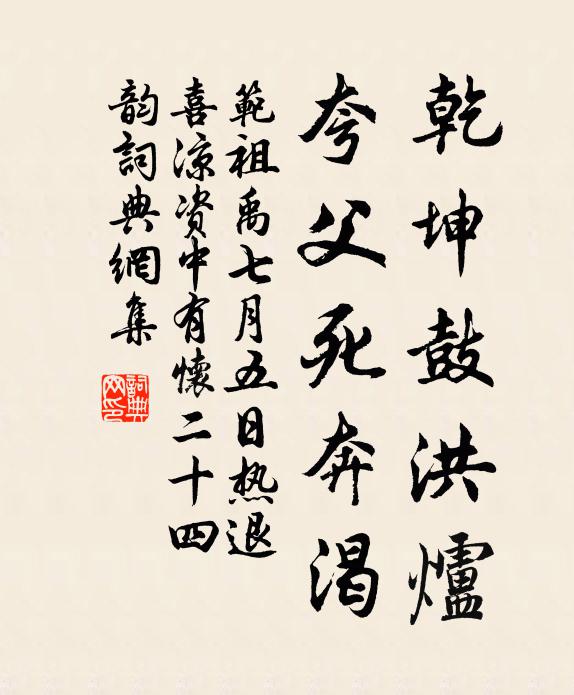 乾坤鼓洪爐
夸父死奔渴
範祖禹七月五日热退
喜涼资中有懷二十四
韵詞典網集
詞典网印